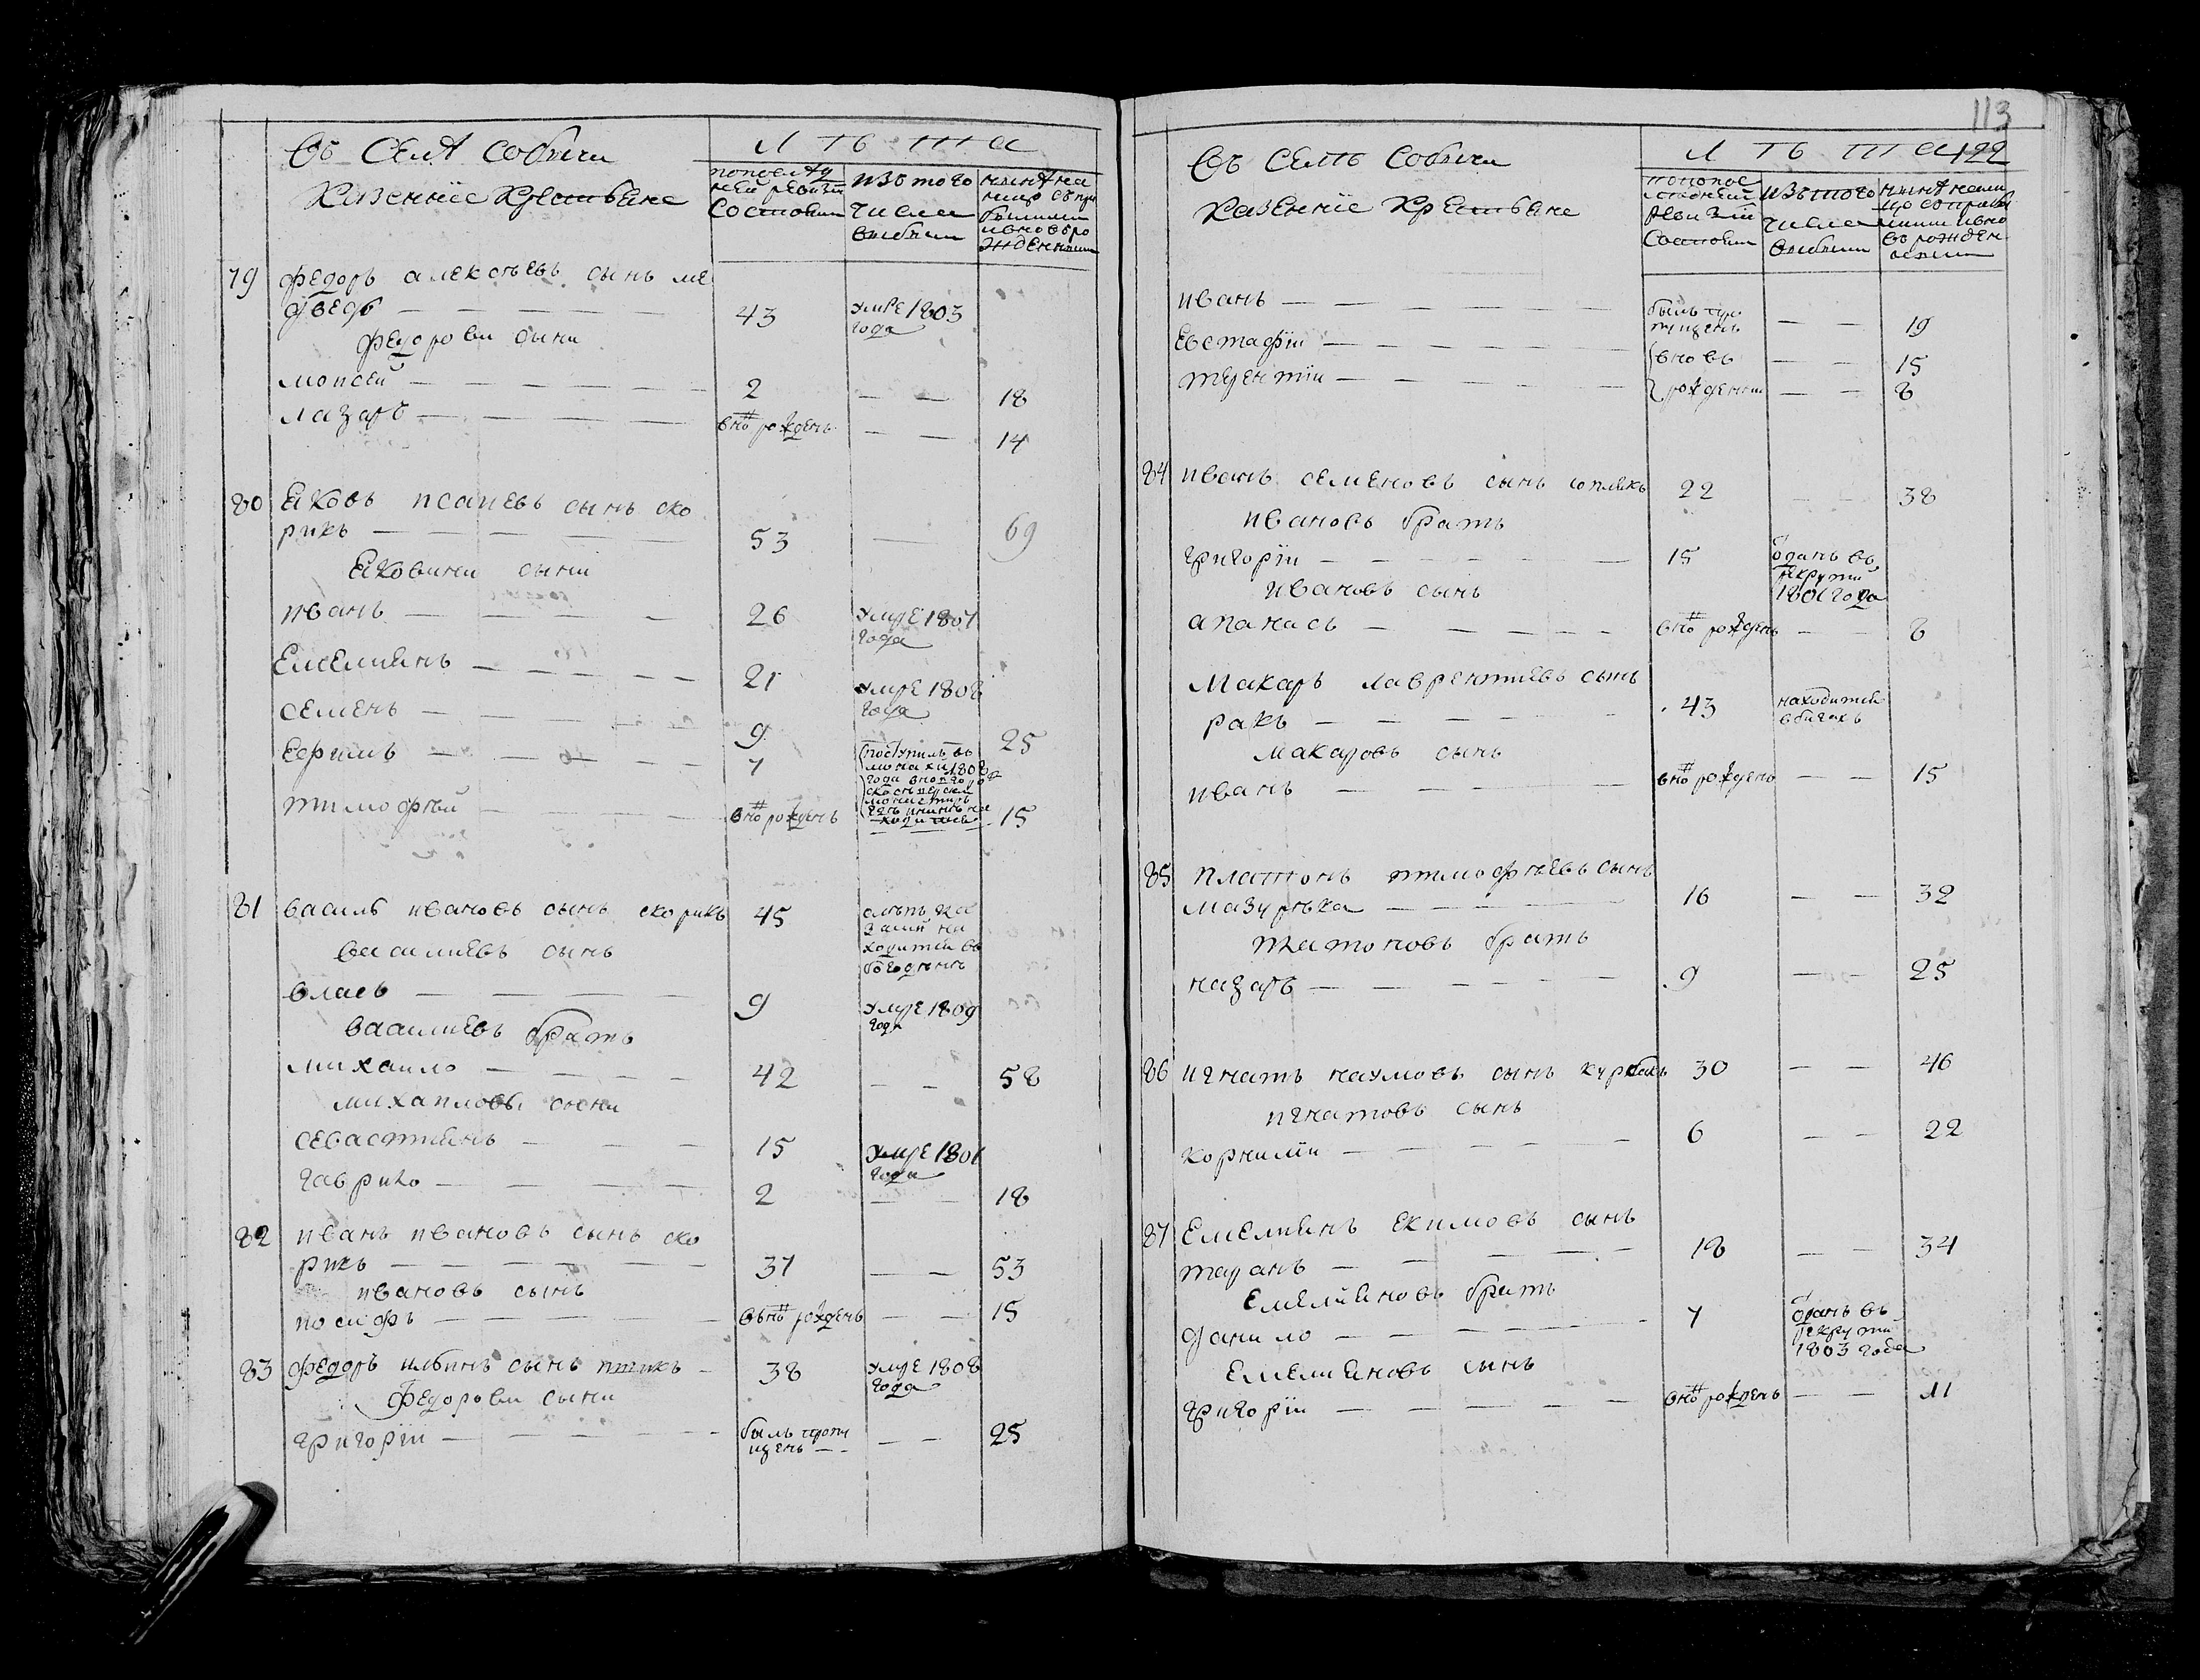 Въ селѣ Собычи
Казенніе Крестьяне
Л ѣ т а
попослѧд
ней ревизіи
состояли
изъ того
числа
выбыли
нынѣ на
лицо съ при
былими
и вновь ро
жденними
79 федоръ алексѣевъ сынъ ме
дведь — 43 умре 1803
года
федорови сыни
моисей — 2 — — 18
лазарь — вно рожденъ — — 14
80 Еяковъ исаиевъ сынъ ско
рикъ — 53 — 69
Еяковини сыни
иванъ — 26 умре 1807
года
Емелиянъ — 21 умре 1808
года
семенъ — 9 25
Ефримъ — 7 поступилъ въ
монахи 1808
года
тимофѣй — вно рожденъ 15
81 василь ивановъ сынъ скорикъ 45
ходится въ
василиевъ сынъ
власъ — 9 умре 1809
года
василиевъ братъ
михаило — 42 — — 58
михаиловы сыни
севастиянъ — 15 умре 1801
года
гаврило — 2 — — 18
82 иванъ ивановъ сынъ ско
рикъ — 37 — — 53
ивановъ сынъ
иосифъ — вьно рожденъ — — 15
83 федоръ ильинъ сынъ птикъ — 38 умре 1808
года
федорови сыни
григорій — былъ пропу
щенъ — — — 25
113
Въ селѣ Собычи
Казенніе Крестьяне
Л ѣ т а 122
попос
лѣдней
ревизіи
состояли
изъ того
числа
выбыли
нынѣ нали
цо съ прибы
лими и вно
въ рожден
ними
иванъ — былъ про
пущенъ — — 19
Евстафіи — вновь — — 15
терентіи — рожденни — — 8
84 иванъ семеновъ сынъ сопликъ 22 — — 38
ивановъ братъ
григоріи — 15 ѿданъ въ
рекрути
1801 года
ивановъ сынъ
апанасъ — вно рожденъ — — 8
Макаръ лаврентиевъ сынъ
ракъ — 43 находится
в бегахъ
макаровъ сынъ
иванъ — вно рожденъ — — 15
85 платонъ тимофѣевъ сынъ
мазурѣка — 16 — — 32
платоновъ братъ
назаръ — 9 — — 25
86 игнатъ наумовъ сынъ курбакъ 30 — — 46
игнатовъ сынъ
корниліи — 6 — — 22
87 Емелиянъ екимовъ сынъ
таранъ — 18 — — 34
Емелияновъ братъ
данило — 7 ѿданъ въ
рекрути
1803 года
Емелияновъ сынъ
григоріи — вно рожденъ — — 11